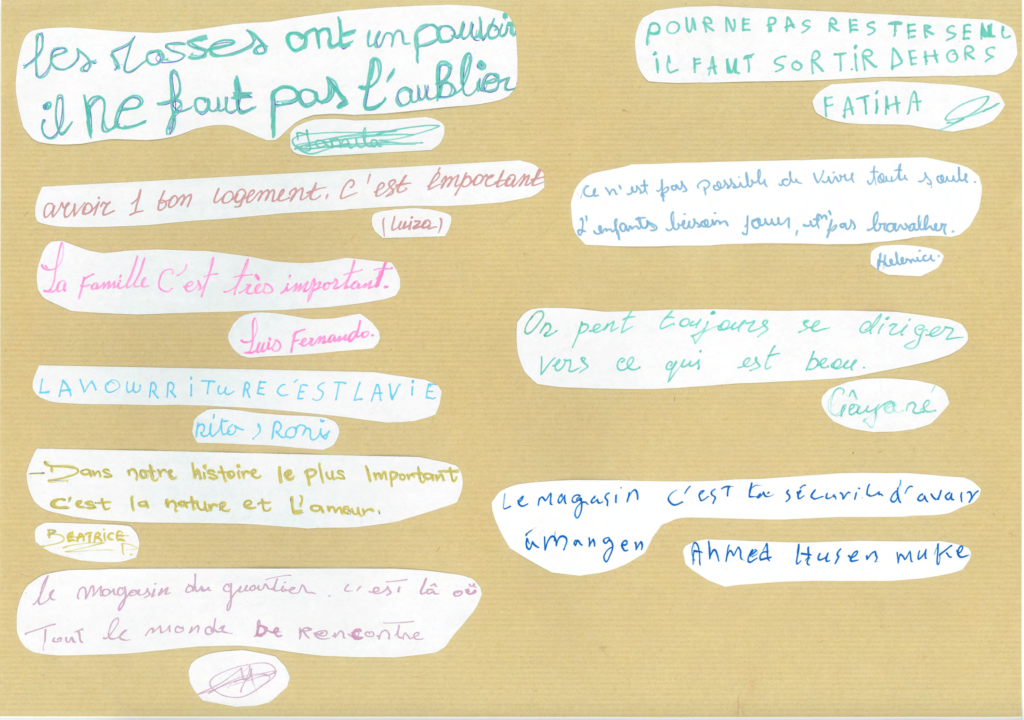 les Mosses ont un pouvoir
il ne faut pas l'aublier
Jamila
arvoir 1 bon logement. C'est important
(Luiza)
La Famille C'est très important.
Luis Fernando.
LA NOURRITURE C'EST LA VIE
rita, Ronis
- Dans notre histoire le plus Important
c'est la nature et L'amour.
BEATRICE
le magasin du quartier. c'est là où
Tout le monde se rencontre
POUR NE PAS RESTER SEUL
IL FAUT SORTIR DEHORS
FATIHA
ce n'est pas possible de vivre toute seule.
d'enfants besoin jouer, et pas travailler.
Helenice.
On peut toujours se diriger
vers ce qui est beau.
Gâyané
Le Magasin c'est la sécurité d'avair
à Mangen
Ahmed Husen muke